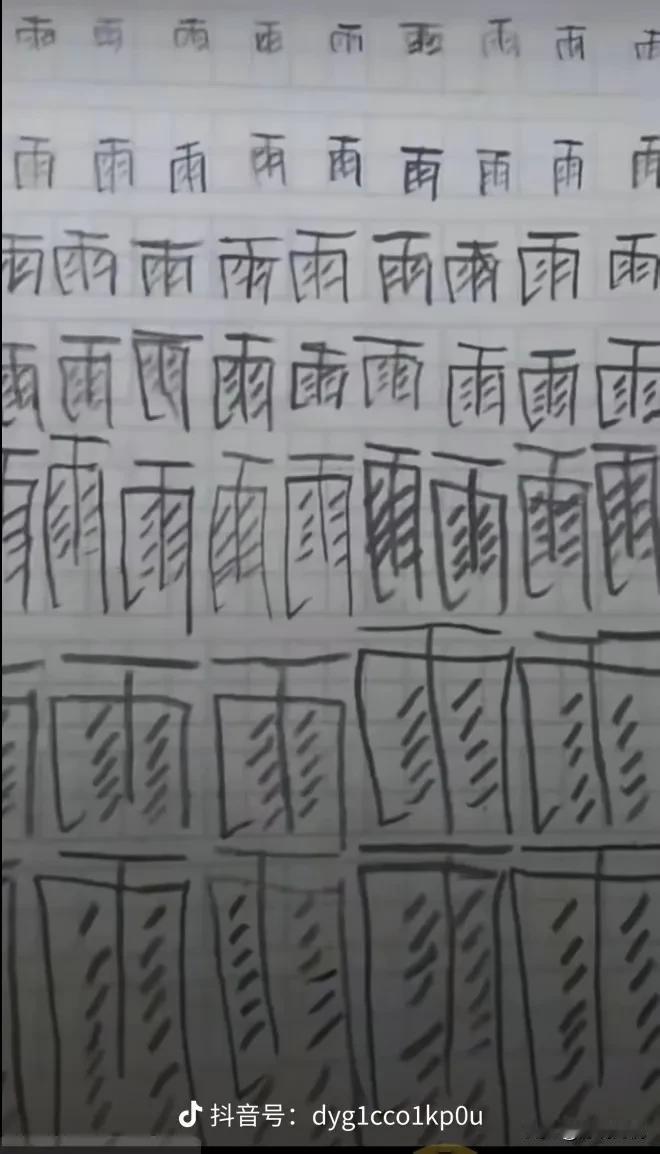 雨雨雨雨雨雨雨雨雨
雨雨雨雨雨雨雨雨雨
雨雨雨雨雨雨雨雨雨
雨雨雨雨雨雨雨雨雨
雨雨雨雨雨雨雨雨雨
雨雨雨雨
雨雨雨雨
抖音号：dyg1cco1kp0u